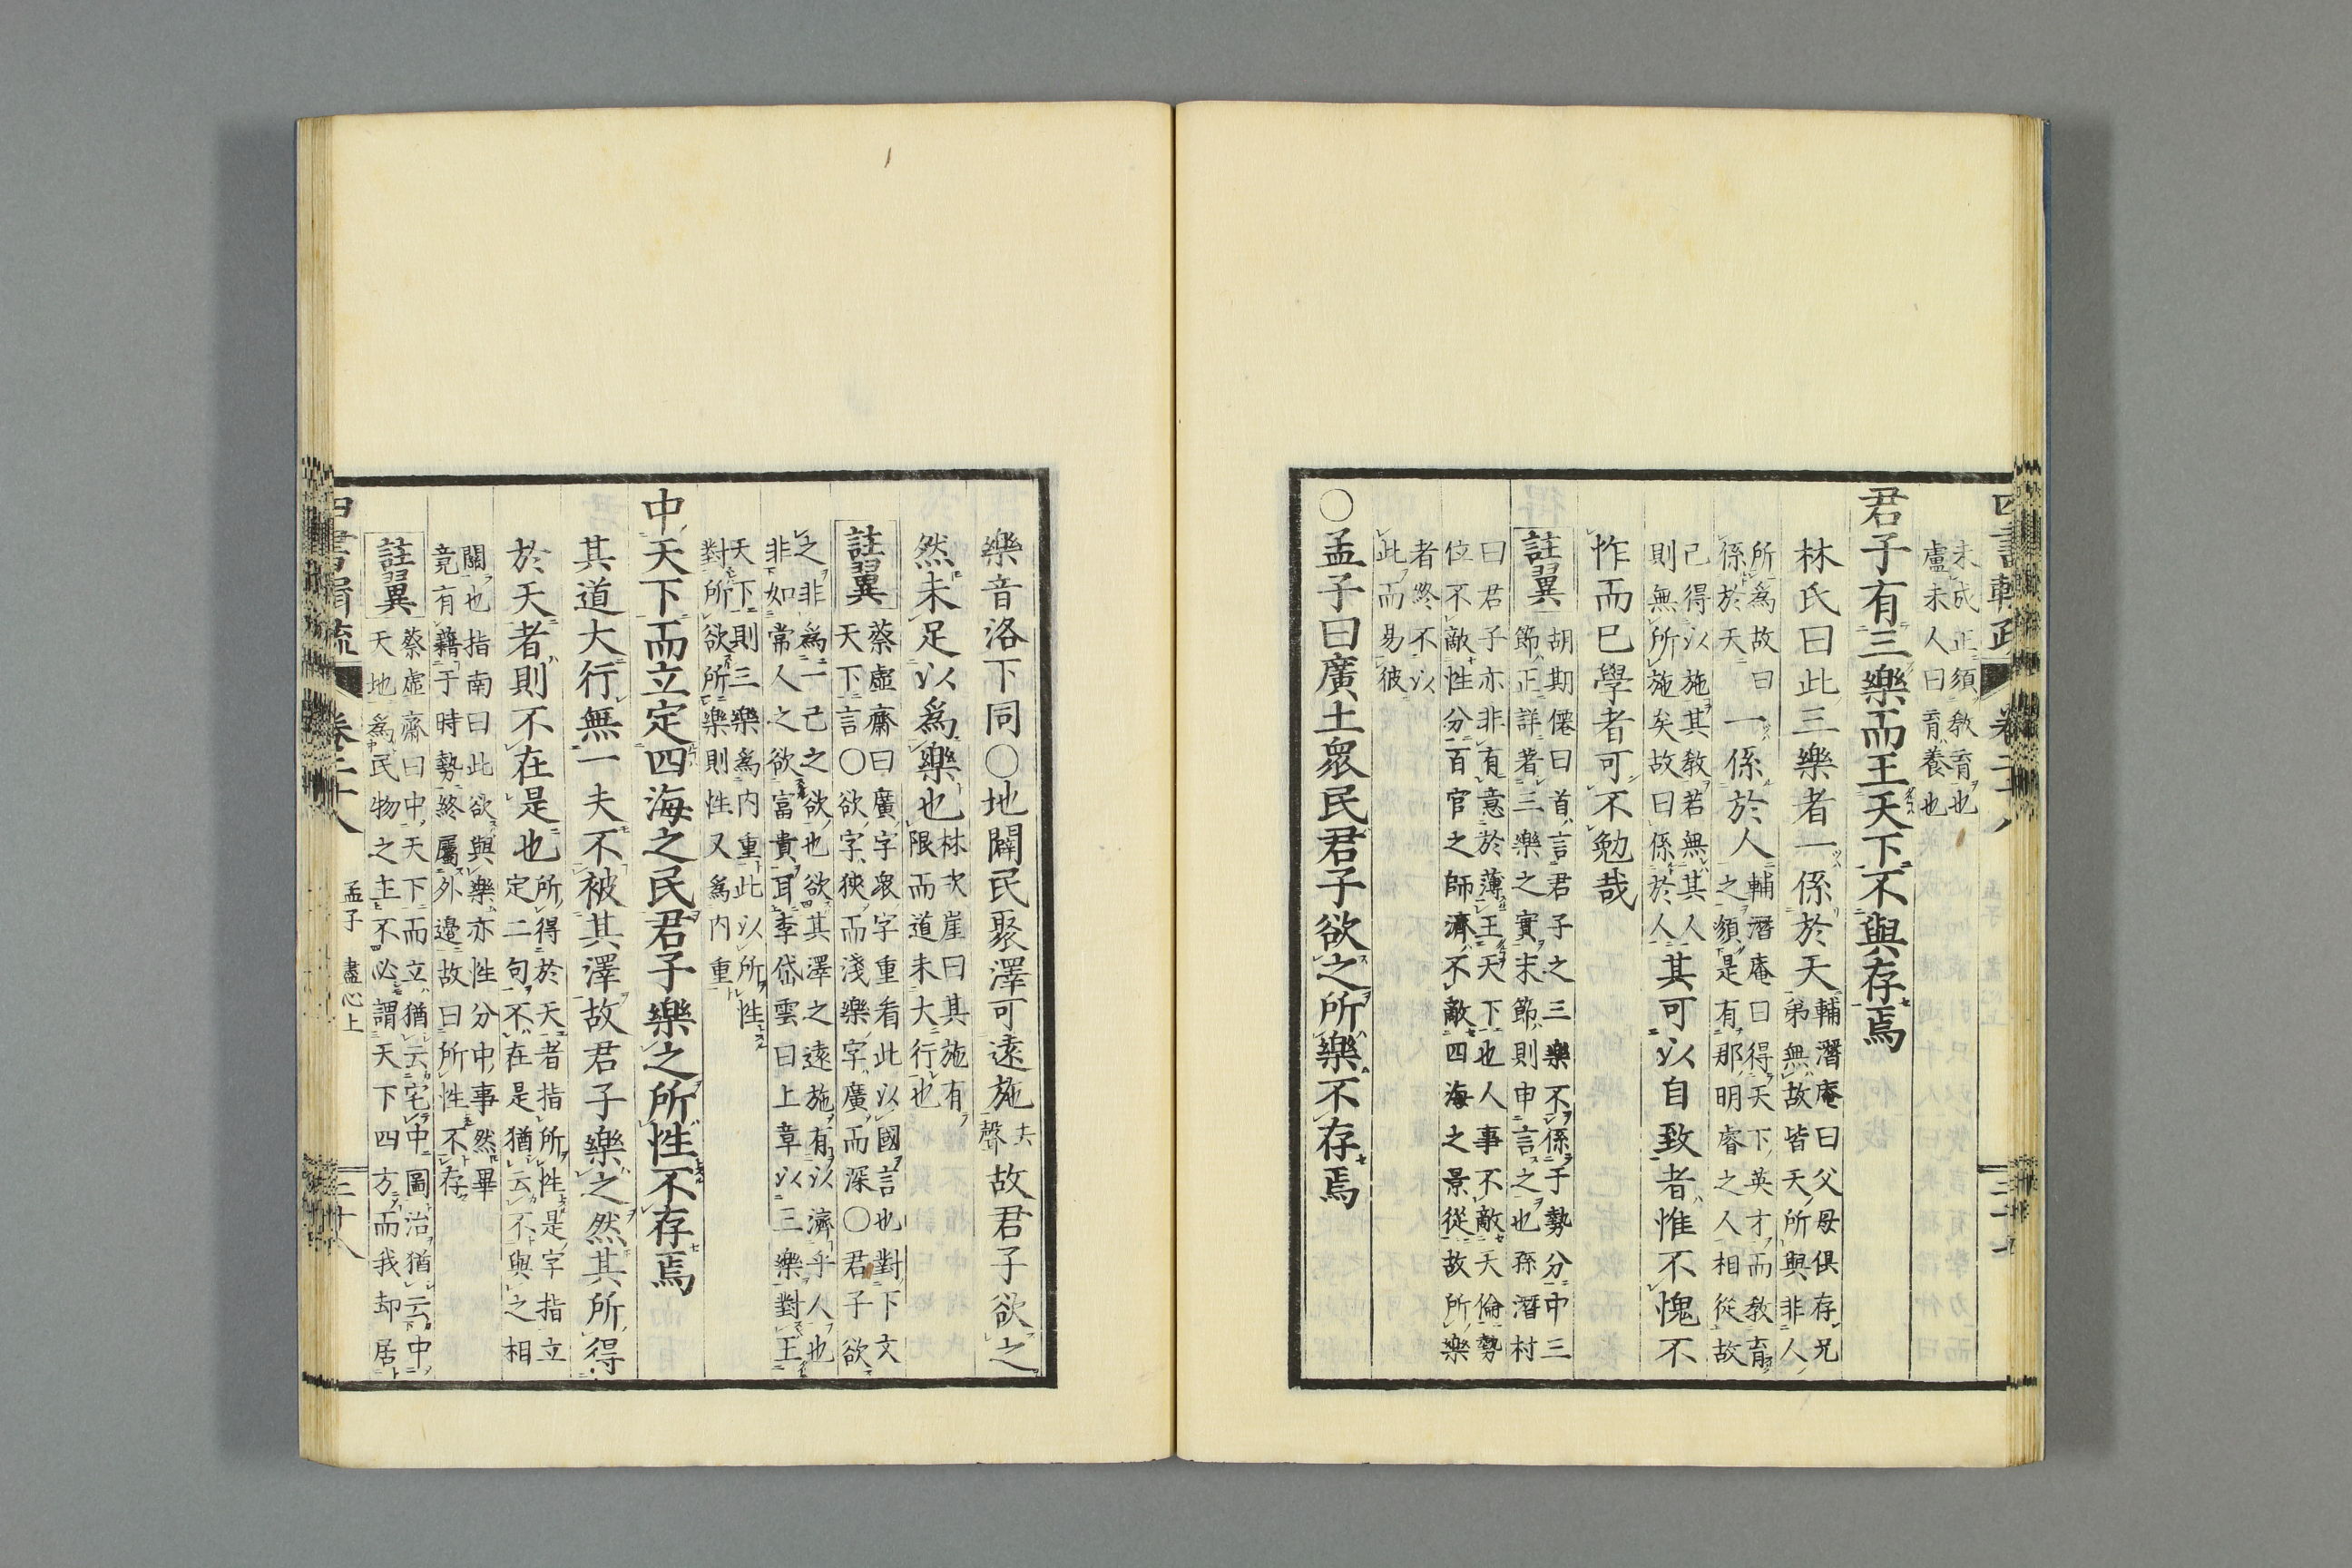 未成正須敎育也
盧未人曰育養也
君子有三樂而王天下不與存焉
林氏曰此三樂者一係於天
輔潛庵曰父母俱存兄
弟無故皆天所與非人
所爲故曰
係於天
一係於人
輔潛庵曰得天下英才而敎育
之須是有那明睿之人相從故
己得以施其敎若無其人
則無所施矣故曰係於人
其可以自致者惟不愧不
怍而已學者可不勉哉
註翼
胡期僊曰首言君子之三樂不係于勢分中三
節正詳著三樂之實末節則申言之也孫潛村
曰君子亦非有意於薄王天下也人事不敵天倫勢
位不敵性分百官之師濟不敵四海之景從故所樂
者終不以
此而易彼
○孟子曰廣土衆民君子欲之所樂不存焉
樂音洛下同○地闢民聚澤可遠施
去
聲
故君子欲之
然未足以爲樂也
林次崖曰其施有
限而道未大行也
註翼
蔡虛齋曰廣字衆字重看此以國言也對下文
天下言○欲字狹而淺樂字廣而深○君子欲
之非爲一己之欲也欲其澤之遠施有以濟乎人也
非如常人之欲富貴耳李岱雲曰上章以三樂對王
天下則三樂爲內重此以所性
對所欲所樂則性又爲內重
中天下而立定四海之民君子樂之所性不存焉
其道大行無一夫不被其澤故君子樂之然其所得
於天者則不在是也
所得於天者指所性是字指立
定二句不在是猶云不與之相
關也指南曰此欲與樂亦性分中事然畢
竟有藉于時勢終屬外邊故曰所性不存
註翼
蔡虛齋曰中天下而立猶云宅中圖治猶云中
天地爲民物之主不必謂天下四方而我却居
孟子 盡心上
三十八